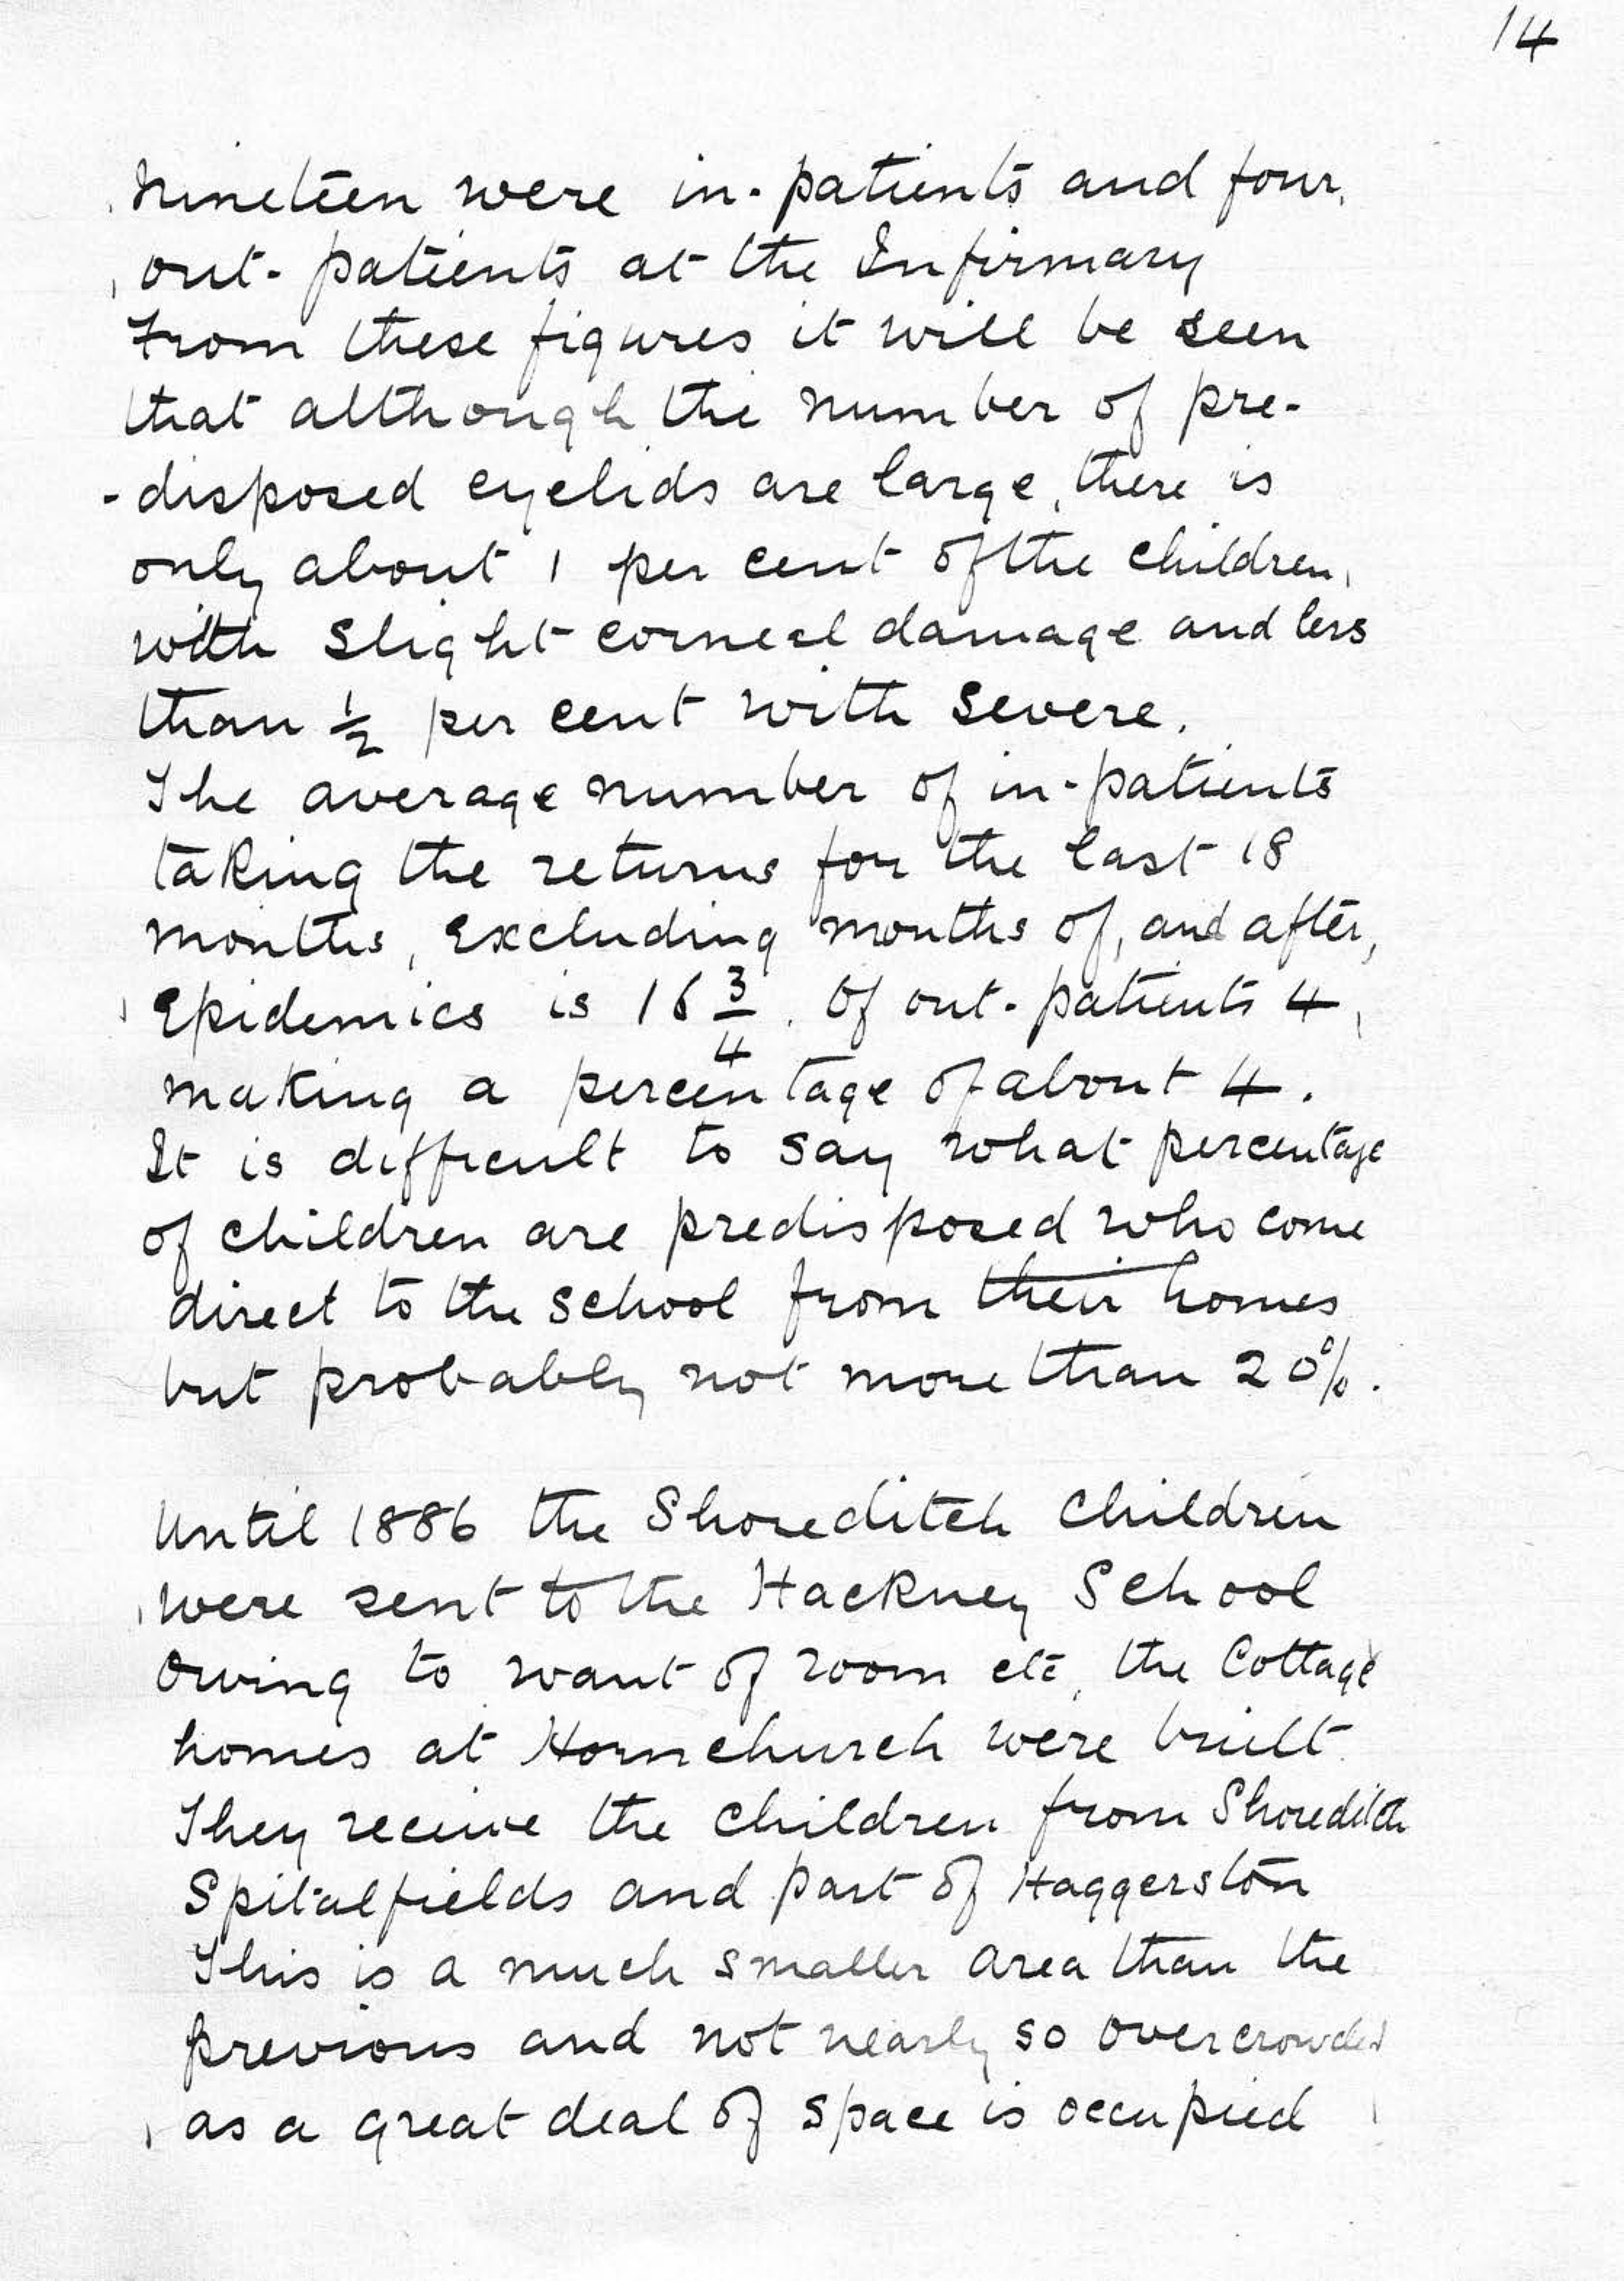 14
Nineteen were in-patients and four
out-patients at the Infirmary
From these figures it will be seen
that although the number of pre-
-disposed eyelids are large, there is
only about 1 per cent of the children
with slight corneal damage and less
than ½ per cent with severe.
The average number of in-patients
taking the returns for the last 18
months, excluding months of, and after,
Epidemics is 16 3/4. Of out-patients 4,
making a percentage of about 4.
It is difficult to say what percentage
of children are predisposed who come
direct to the school from their homes
but probably not more than 20%.
Until 1886 the Shoreditch children
were sent to the Hackney School
Owing to want of room etc, the Cottage
homes at Hornchurch were built.
They receive the children from Shoreditch
Spitalfields and part of Haggerston
This is a much smaller area than the
previous and not nearly so overcrowded
as a great deal of space is occupied